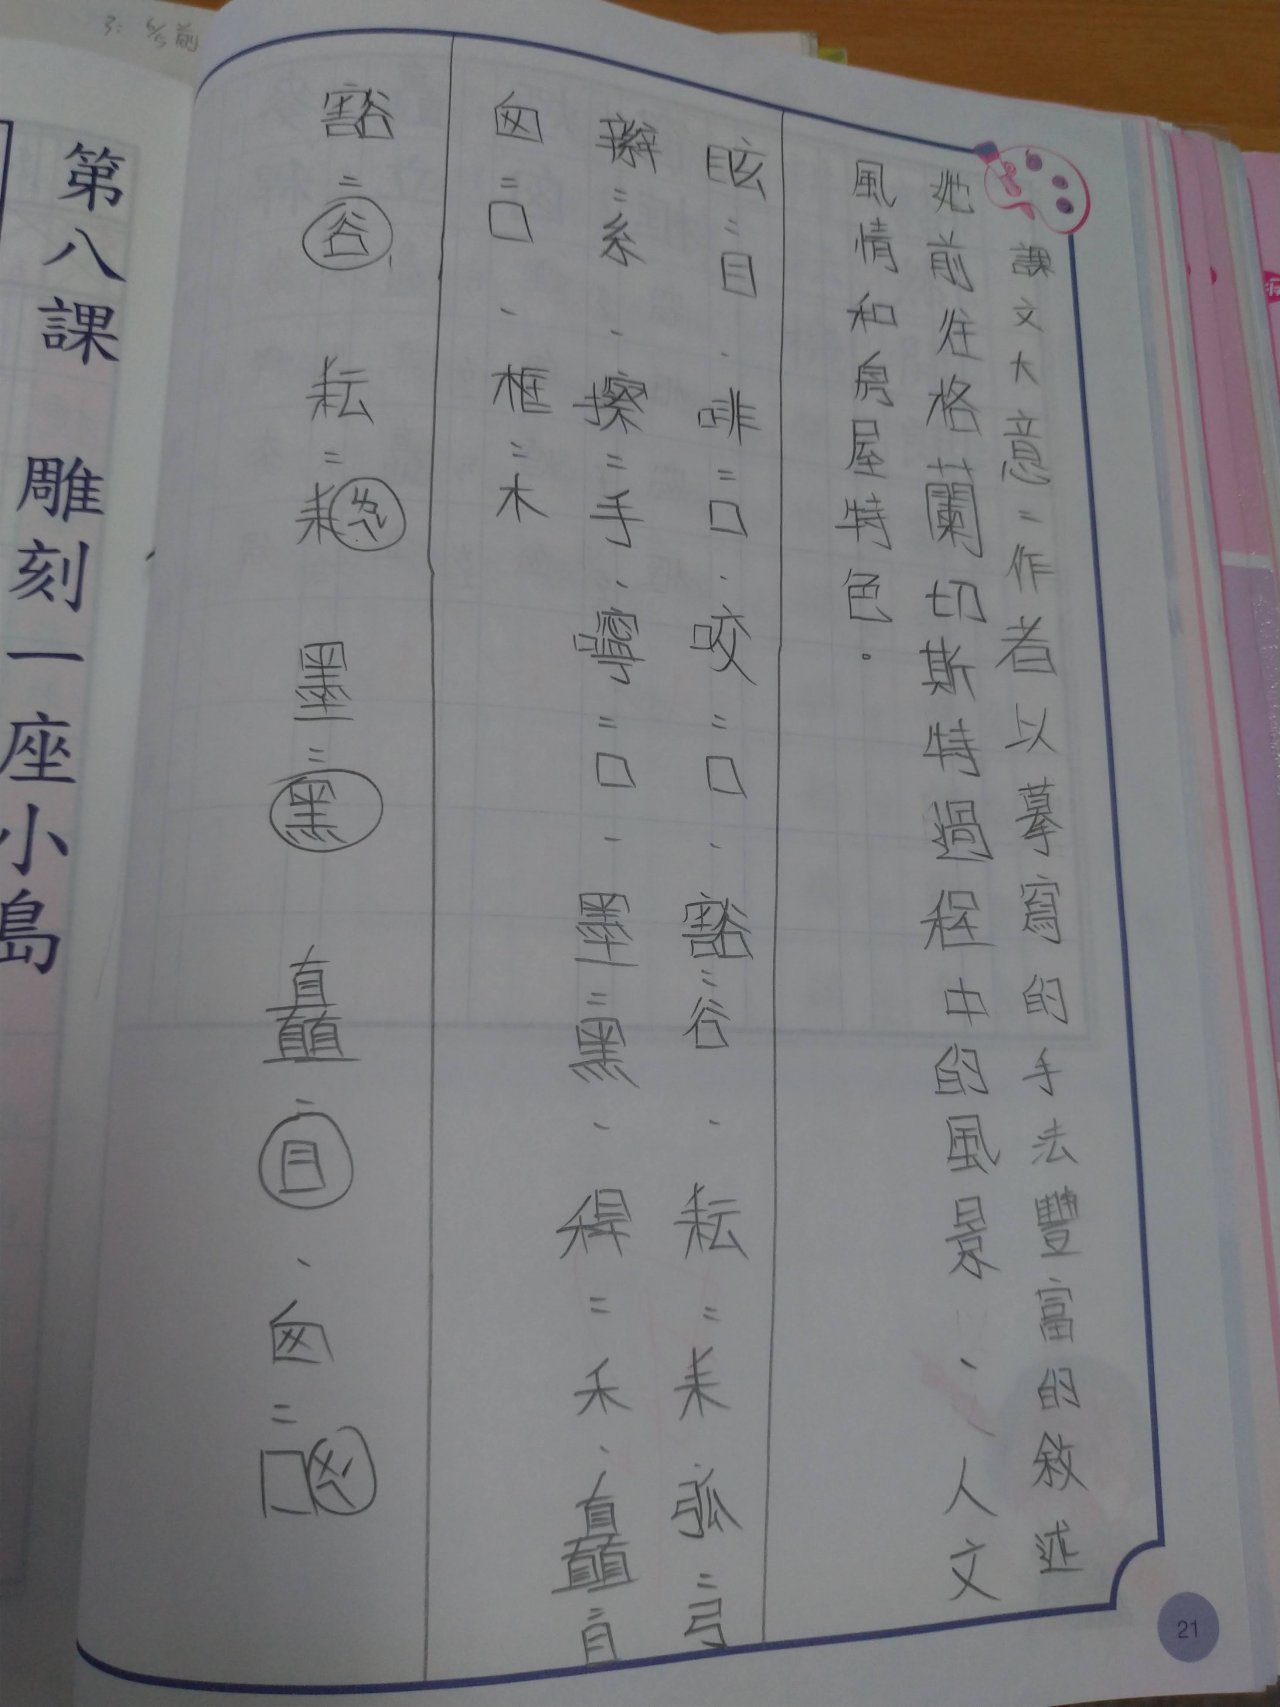 課文大意：作者以摹寫的手法豐富的敘述
她前往格蘭切斯特過程中的風景、人文
風情和房屋特色。
眩：目、啡：口、咬：口、豁：谷、耘：耒 弧：弓
辮：糸、擦：手、嚀：口、墨：黑、稈：禾、矗：目
囪：囗、框：木
豁：谷、耘：耒 墨：黑 矗：目、囪：囗
第八課 雕刻一座小島
21